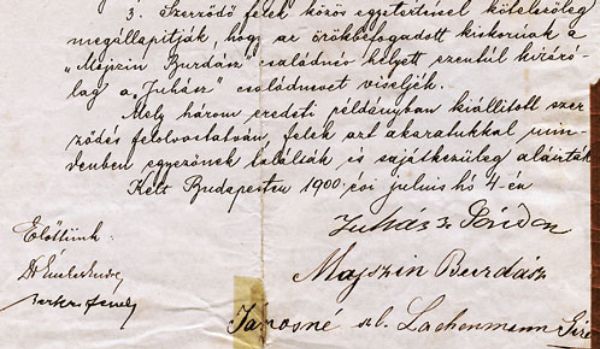 3. Szerződő felek közös egyetértéssel kötelezőleg
megállapitják, hogy az örökbefogadott kiskorúak a
„Majszin Burdász" családnév helyett ezentúl kizáró-
lag a „Juhász" családnevet viseljék.
Mely három eredeti példányban kiállitott szer-
ződés felolvastatván, felek azt akaratukkal min-
denben egyezőnek találták és sajátkezüleg aláirták
Kelt Budapesten 1900. évi julius hó 4-én
Juhász Sándor
Előttünk:
Majszin Burdász
Jánosné sz. Lachenmann